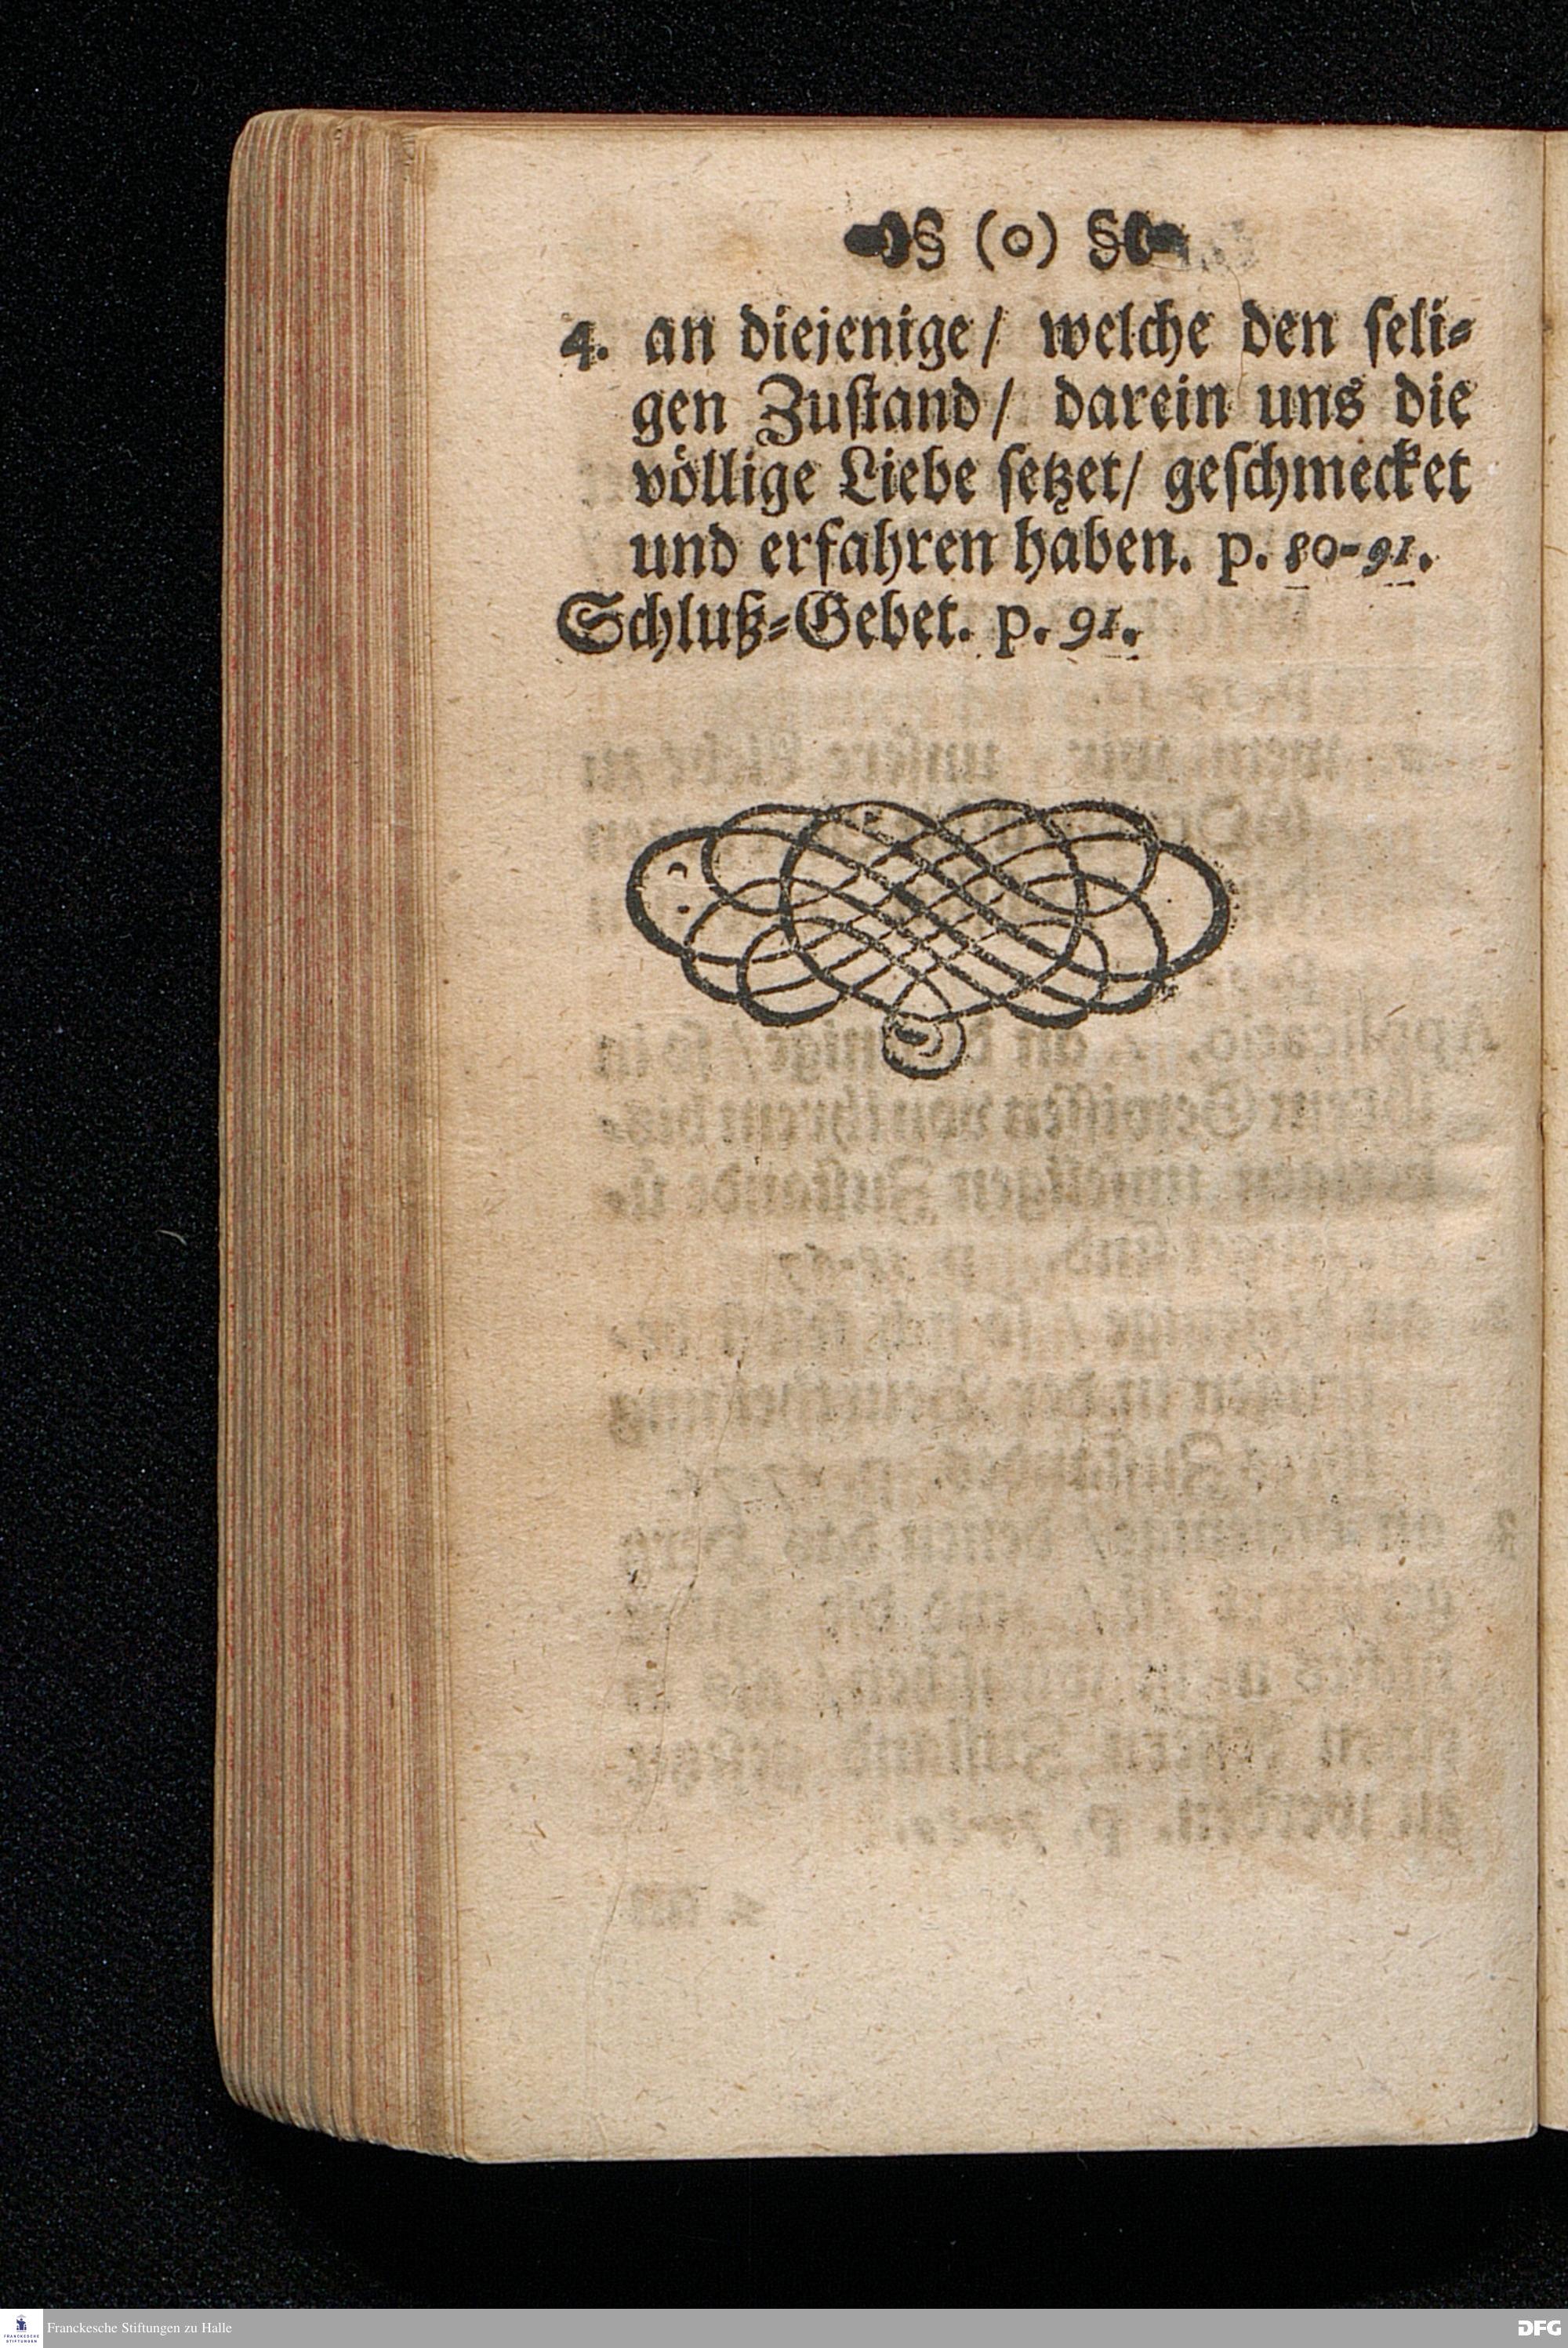 § (o) §
4. an diejenige/ welche den ſeli⸗
gen Zuſtand/ darein uns die
völlige Liebe ſetzet/ geſchmecket
und erfahren haben. p. 80-91.
Schluß⸗Gebet. p. 91.
Franckesche Stiftungen zu Halle
DFG